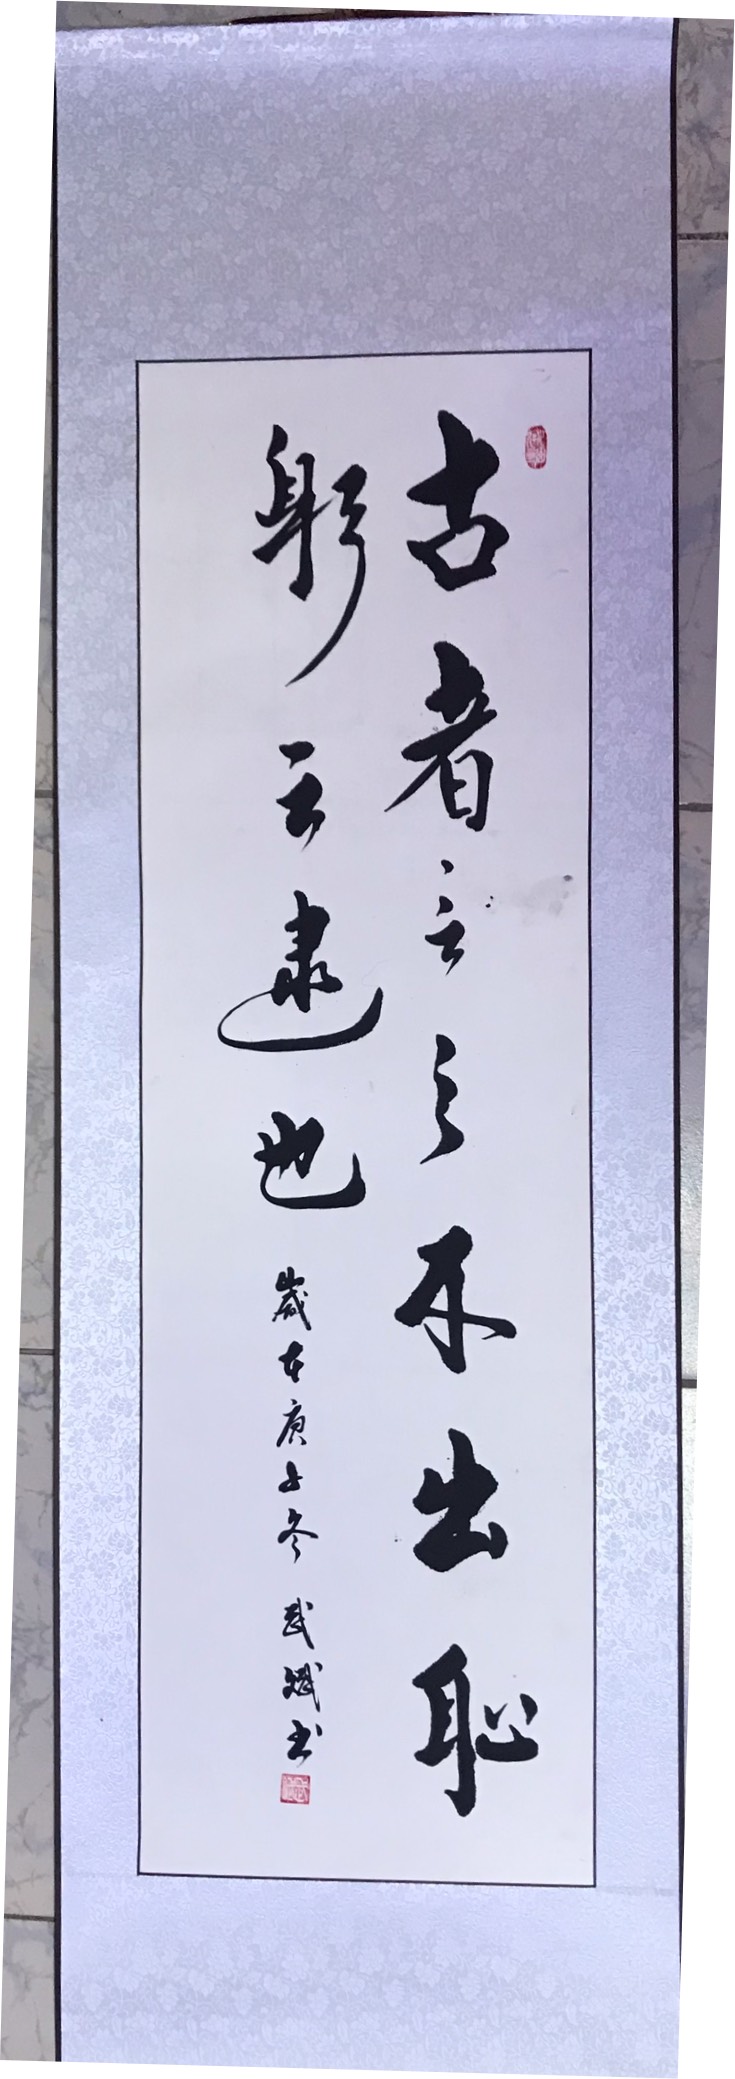 古者言之不出恥
躬不逮也
歲在庚子冬 武斌書